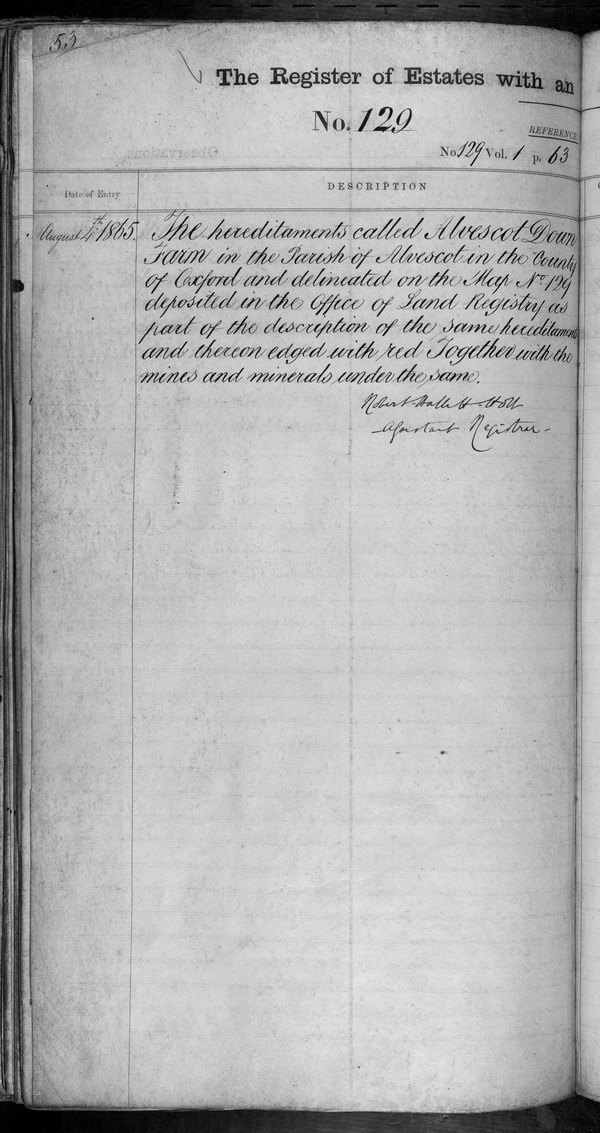 53
The Register of Estates with an
No. 129
REFERENCE
No 129 Vol. 1 p. 63
Observations.
Date of Entry
DESCRIPTION
August 4th 1865.
The hereditaments called Alvescot Down
Farm in the Parish of Alvescot in the County
of Oxford and delineated on the Map No 129
deposited in the Office of Land Registry as
part of the description of the same hereditaments
and thereon edged with red Together with the
mines and minerals under the same.
Robert Hallett Holt
Assistant Registrar